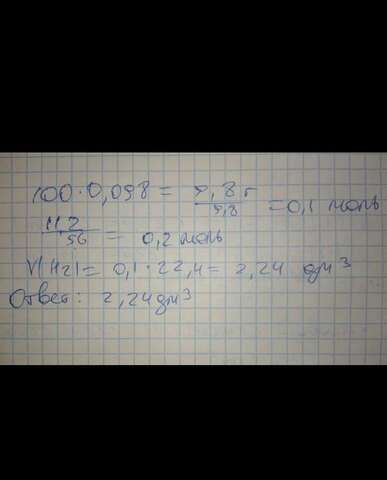 100·0,098 = 9,8 г / 9,8 = 0,1 моль
11,2 / 56 = 0,2 моль
V(H2) = 0,1·22,4 = 2,24 дм³
Ответ: 2,24 дм³